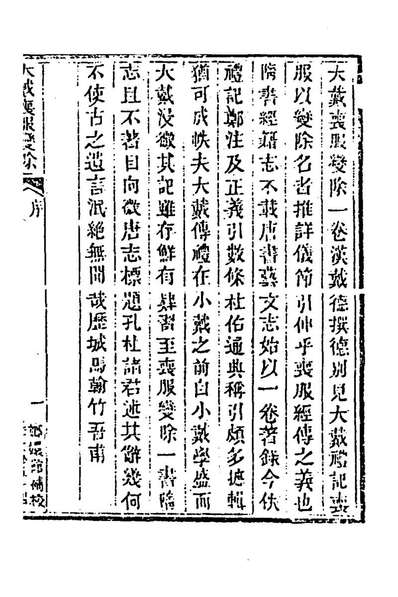 大戴喪服變除一卷漢戴德撰德別見大戴禮記喪
服以變除名者推詳儀節引伸乎喪服經傳之義也
隋書經籍志不載唐書藝文志始以一卷著錄今佚
禮記鄭注及正義引數條杜佑通典稱引頗多摭輯
猶可成帙夫大戴傳禮在小戴之前自小戴學盛而
大戴浸微其記雖存鮮有肄習至喪服變除一書隋
志且不著目向微唐志標題孔杜諸君述其餘幾何
不使古之遺言泯絕無聞哉歷城馬翰竹吾甫
大戴喪服變除
序
一